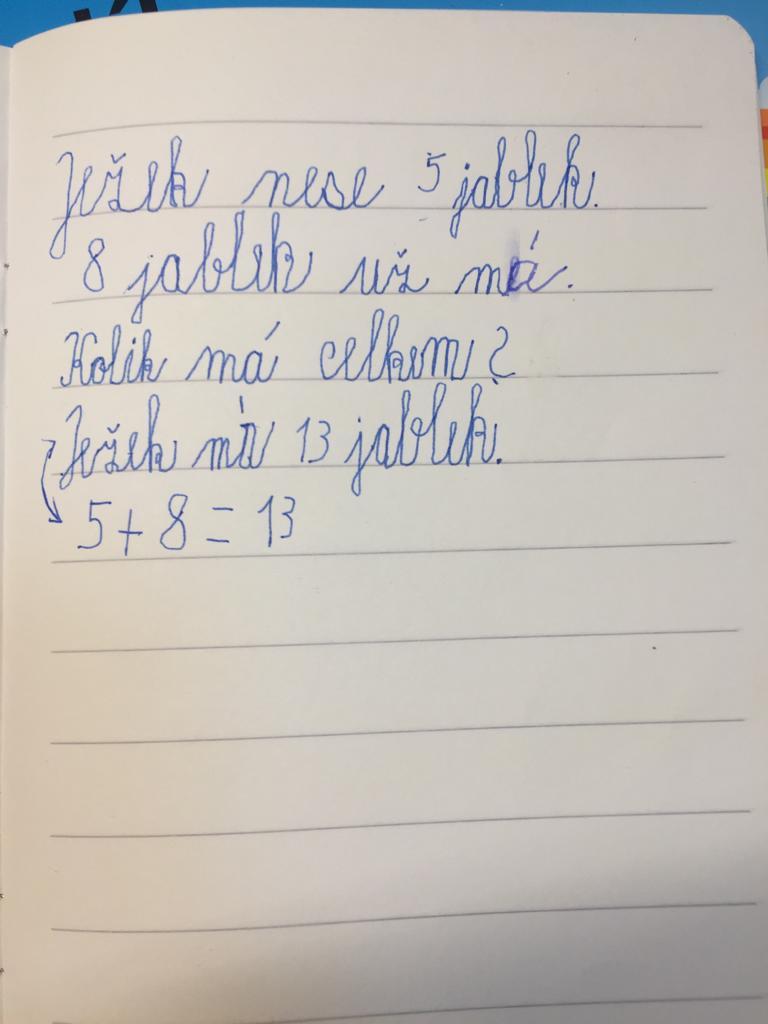 Ježek nese 5 jablek.
8 jablek už má.
Kolik má celkem?
Ježek má 13 jablek.
5 + 8 = 13